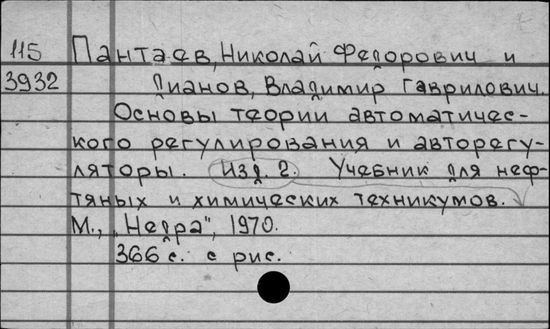 115 Пантаев, Николай Федорович и
3932 Дианов, Владимир Гаврилович.
Основы теории автоматичес-
кого регулирования и авторегу-
ляторы. Изд. 2. Учебник для неф-
тяных и химических техникумов.
М., "Недра", 1970.
366 с. с рис.